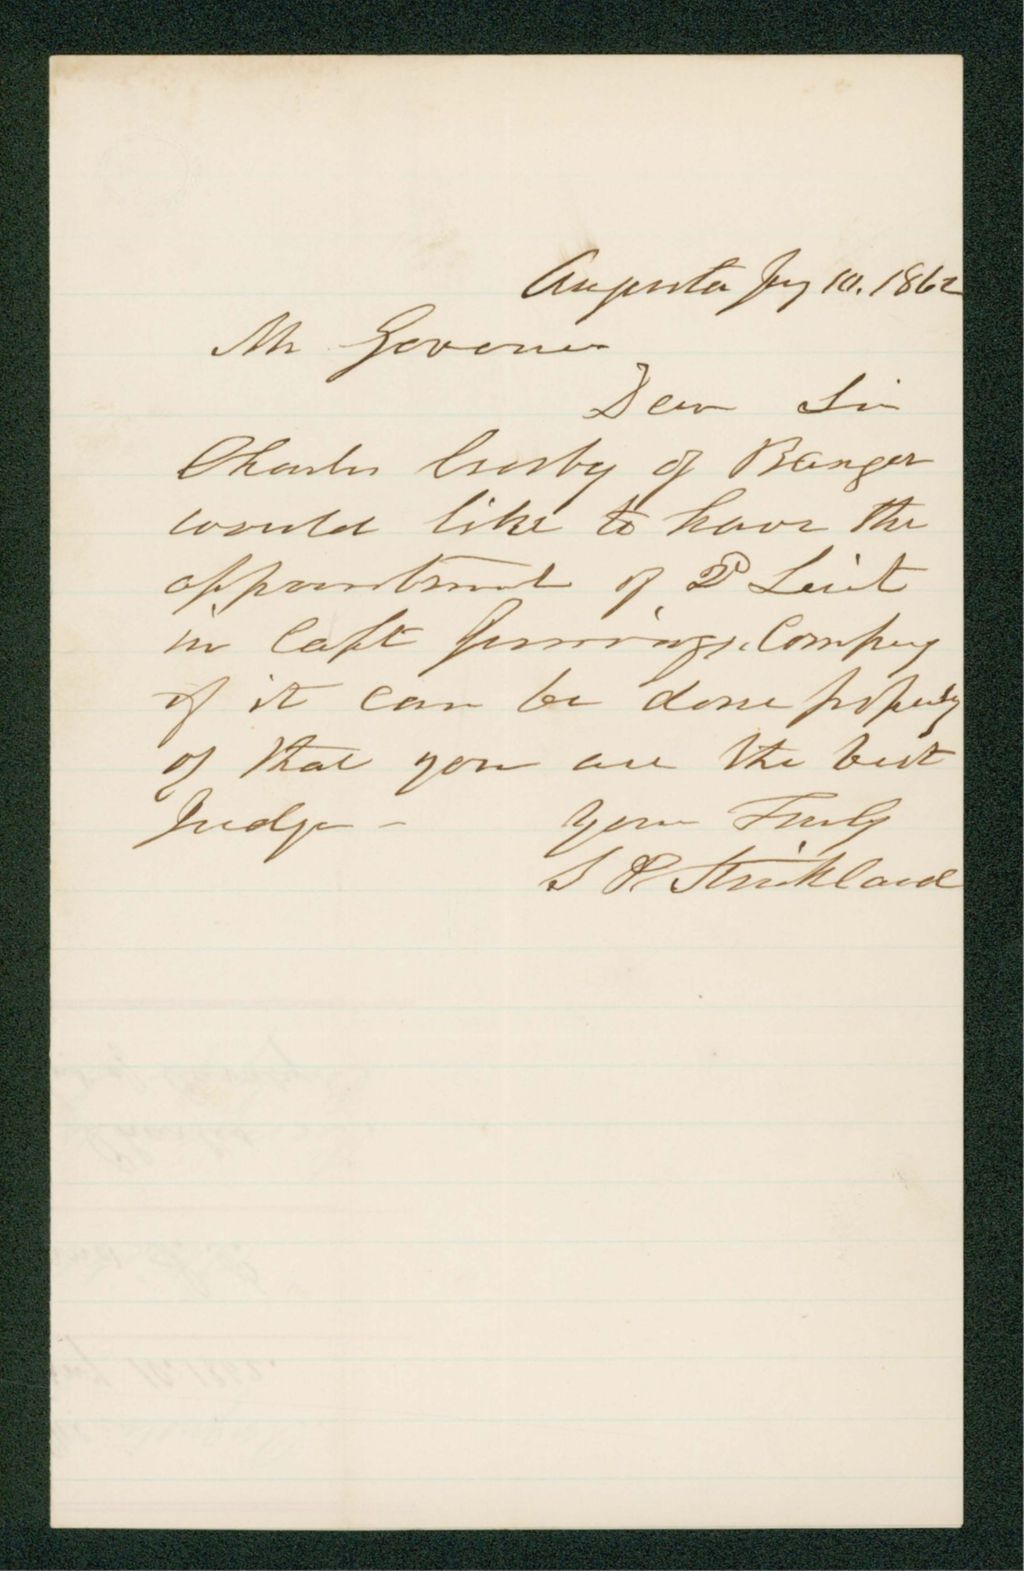 Augusta Jny 10. 1862
Mr Governer
Dear Sir
Charles Crosby of Bangor
would like to have the
appointment of 2d Leiut
in Capt Jennings. Company
if it can be done properly
of that you are the best
Judge -
Yours Truly
S P Strickland